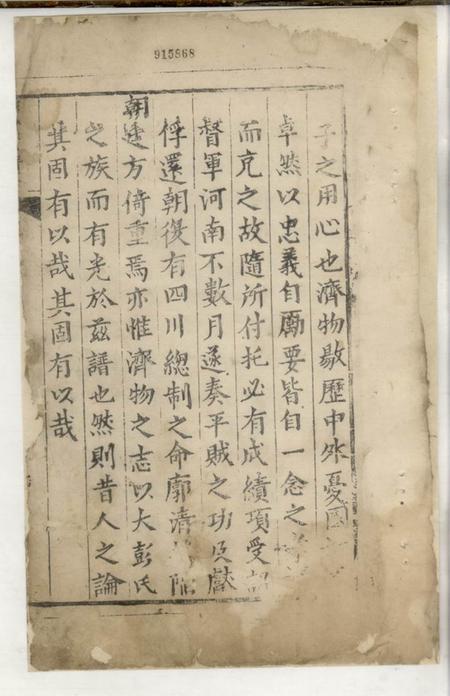 915868
子之用心也濟物敭歷中外憂國
卓然以忠義自勵要皆自一念之
而充之故隨所付托必有成績項受
督軍河南不數月遂奏平賊之功及獻
俘還朝復有四川總制之命廓清
朝建方倚重焉亦惟濟物之志以大彭氏
之族而有光於茲譜也然則昔人之論
其固有以哉其固有以哉